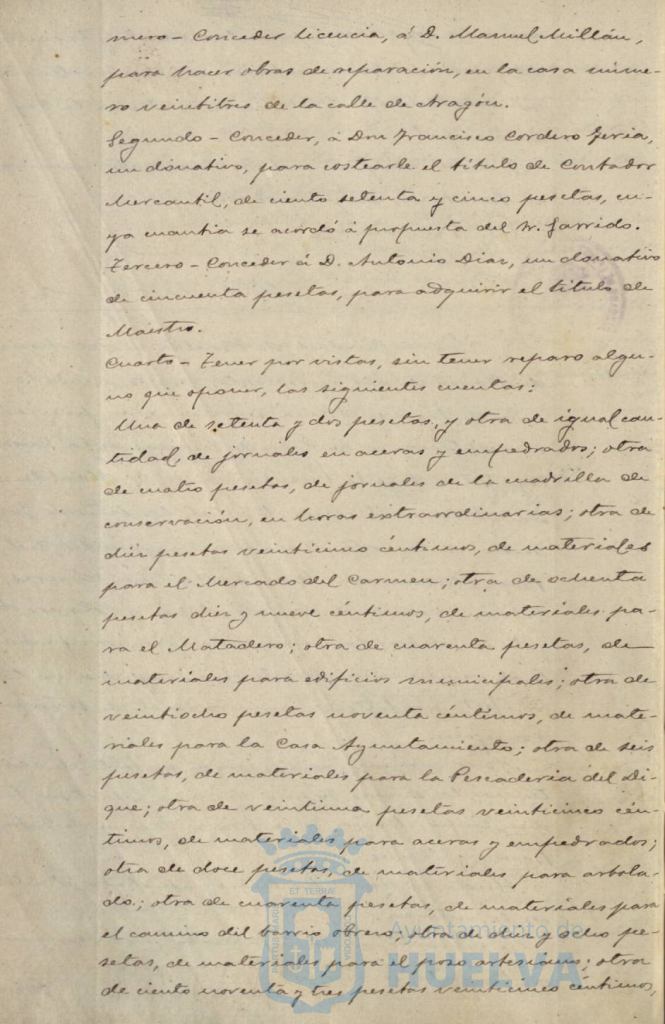 mero - Conceder licencia, á D. Manuel Millán,
para hacer obras de reparación, en la casa núme-
ro veintitres de la calle de Aragón.
Segundo - Conceder, á Don Francisco Cordero Feria,
un donativo, para costearle el título de Contador
Mercantil, de ciento setenta y cinco pesetas, cu-
ya cuantía se acordó á propuesta del Sr. Garrido.
Tercero - Conceder á D. Antonio Diaz, un donativo
de cincuenta pesetas, para adquirir el título de
Maestro.
Cuarto - Tener por vistas, sin tener reparo algu-
no que oponer, las siguientes cuentas:
Una de setenta y dos pesetas, y otra de igual can-
tidad, de jornales en aceras y empedrados; otra
de cuatro pesetas, de jornales de la cuadrilla de
conservación, en horas extraordinarias; otra de
diez pesetas veinticinco céntimos, de materiales
para el Mercado del Carmen; otra de ochenta
pesetas diez y nueve céntimos, de materiales pa-
ra el Matadero; otra de cuarenta pesetas, de
materiales para edificios municipales; otra de
veintiocho pesetas noventa céntimos, de mate-
riales para la Casa Ayuntamiento; otra de seis
pesetas, de materiales para la Pescaderia del Di-
que; otra de veintiuna pesetas veinticinco cén-
timos, de materiales para aceras y empedrados;
otra de doce pesetas, de materiales para arbola-
do; otra de cuarenta pesetas, de materiales para
el camino del barrio obrero; otra de diez y ocho pe-
setas, de materiales para el pozo artesiano; otra
de ciento noventa y tres pesetas veinticinco céntimos,
Ayuntamiento de
HUELVA